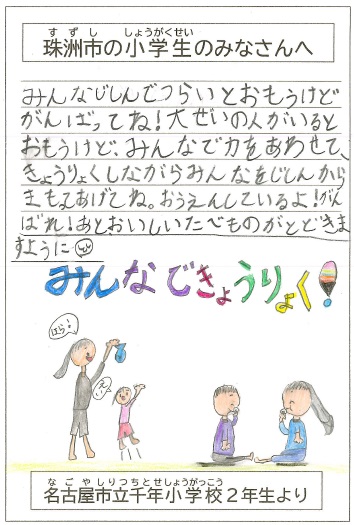 すずし しょうがくせい
珠洲市の小学生のみなさんへ
みんなじしんでつらいとおもうけど
がんばってね!大ぜいの人がいると
おもうけど、みんなで力をあわせて、
きょうりょくしながらみんなをじしんから
まもってあげてね。おうえんしているよ!がん
ばれ!あとおいしいたべものがとどきま
すように
みんなできょうりょく!
はい!
なごやしりつちとせしょうがっこう
名古屋市立千年小学校2年生より